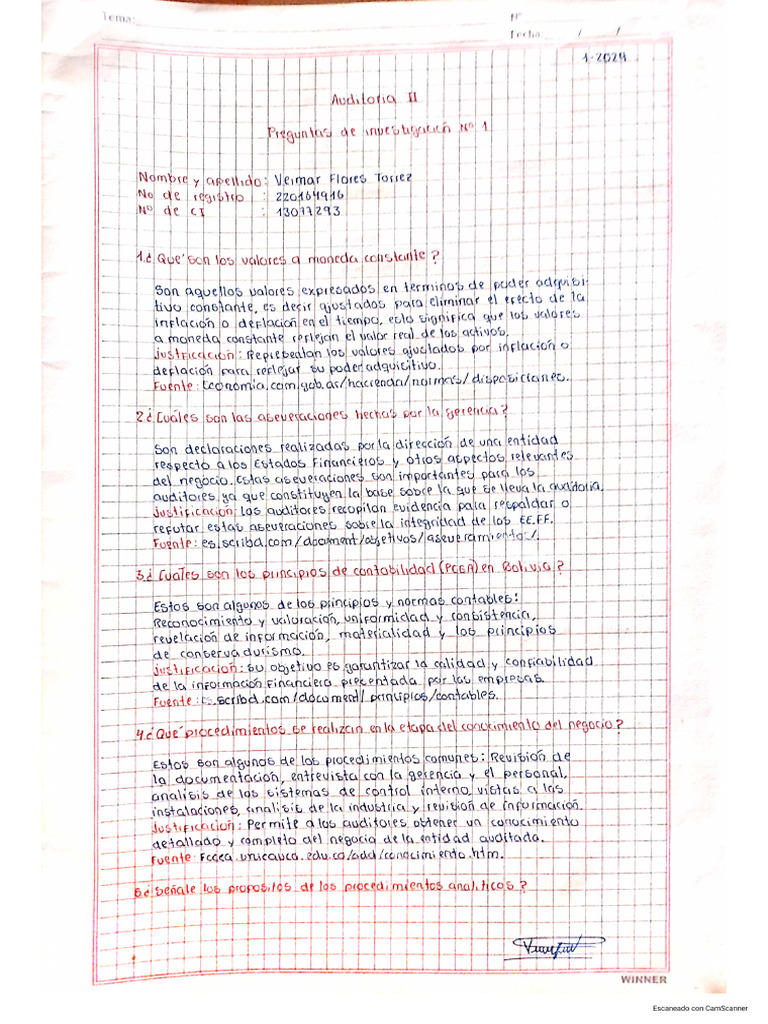 Tema:
N°
Fecha: / /
1-2024
Auditoria II
Preguntas de investigación N° 1
Nombre y apellido: Veimar Flores Torrez
No de registro : 220164916
N° de CI : 13077293
1.¿ Que' son los valores a moneda constante?
Son aquellos valores expresados en terminos de poder adquisi-
tivo constante, es decir ajustados para eliminar el efecto de la
inflación o deflación en el tiempo, esto significa que los valores
a moneda constante reflejan el valor real de los activos.
Justificación: Representan los valores ajustados por inflación o
deflación para reflejar su poder adquicitivo.
Fuente: Economia.com.gob.ar/hacienda/normas/disposiciones.
2¿ Cuáles son las aseveraciones hechas por la gerencia?
Son declaraciones realizadas por la dirección de una entidad
respecto a los Estados Financieros y otros aspectos relevantes
del negocio. Estas aseveraciones son importantes para los
auditores ya que constituyen la base sobre la que se lleva la auditoria.
Justificación: los auditores recopilan evidencia para respaldar o
refutar estas aseveraciones sobre la integridad de los EE.FF.
Fuente: es.scribd.com/document/objetivos/aseveramiento/.
3.¿ Cuales son los principios de contabilidad (PCGA) en Bolivia?
Estos son algunos de los principios y normas contables:
Reconocimiento y valoración, uniformidad y consistencia,
revelación de información, materialidad y los principios
de conservadurismo.
Justificación: su objetivo es garantizar la calidad y confiabilidad
de la información financiera presentada por las empresas.
Fuente: Es.scribd.com/document/principios/contables.
4¿ Que' procedimientos se realizan en la etapa del conocimiento del negocio?
Estos son algunos de los procedimientos comunes: Revisión de
la documentación, entrevista con la gerencia y el personal,
analisis de los sistemas de control interno, vistas a las
instalaciones, analisis de la industria y revisión de información.
Justificación: Permite a los auditores obtener un conocimiento
detallado y completo del negocio de la entidad auditada.
Fuente: Fccea.unicauca.edu.co/add/conocimiento.htm.
5¿ Señale los propositos de los procedimientos analíticos?
WINNER
Escaneado con CamScanner